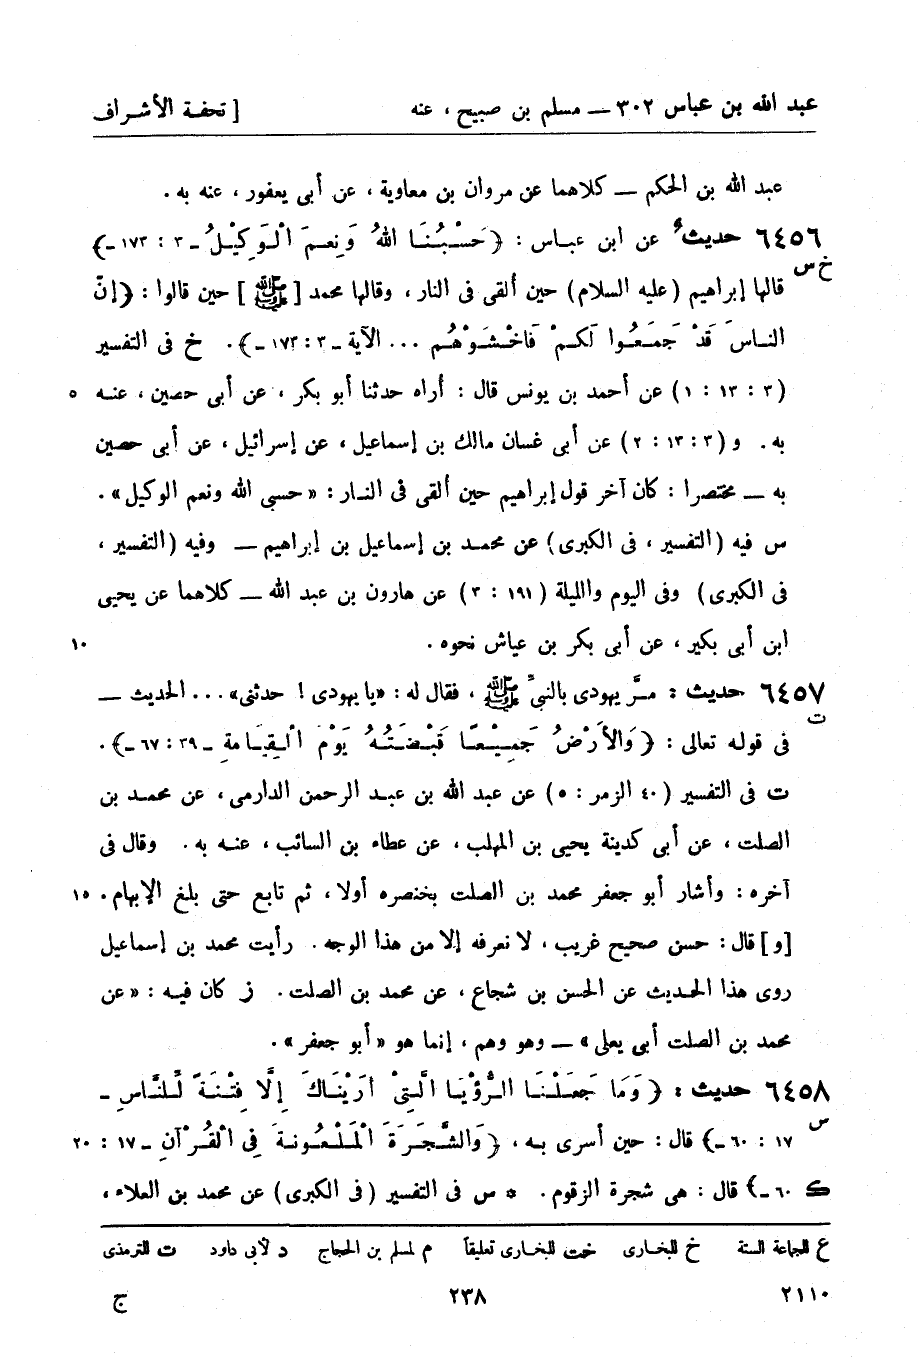 عبد الله بن عباس ٣٠٢ ــ مسلم بن صبيح ، عنه [ تحفة الأشراف
عبد الله بن الحكم ــ كلاهما عن مروان بن معاوية ، عن أبى يعفور ، عنه به .
٦٤٥٦ حديث عن ابن عباس : ﴿ حَسْبُنَا اللهُ وَنِعمَ الْوَكِيْلُ ـ ٣ : ١٧٣ ـ﴾
خ س قالها إبراهيم (عليه السلام) حين ألقى فى النار ، وقالها محمد [ﷺ] حين قالوا : ﴿إنّ
النـاسَ قَدْ جَمَعُوا لَكمْ فَاخْشَوْهُم ... الآية ـ ٣ : ١٧٣ ـ﴾ . خ فى التفسير
(٣ : ١٣ : ١) عن أحمد بن يونس قال : أراه حدثنا أبو بكر ، عن أبى حصين ، عنه ٥
به . و (٣ : ١٣ : ٢) عن أبى غسان مالك بن إسماعيل ، عن إسرائيل ، عن أبى حصين
به ــ مختصرا : كان آخر قول إبراهيم حين ألقى فى النار : «حسبى الله ونعم الوكيل» .
س فيه (التفسير ، فى الكبرى) عن محمد بن إسماعيل بن إبراهيم ــ وفيه (التفسير ،
فى الكبرى) وفى اليوم والليلة (١٩١ : ٣) عن هارون بن عبد الله ــ كلاهما عن يحيى
ابن أبى بكير ، عن أبى بكر بن عياش نحوه . ١٠
٦٤٥٧ حديث : مرَّ يهودى بالنبىّ ﷺ ، فقال له : «يا يهودى ! حدثنى» ... الحديث ــ
ت فى قوله تعالى : ﴿ وَالأَرْضُ جَمِيْعًا قَبْضَتُهُ يَوْمَ الْقِيَامَةِ ـ ٣٩ : ٦٧ ـ﴾ .
ت فى التفسير (٤٠ الزمر : ٥) عن عبد الله بن عبد الرحمن الدارمى ، عن محمد بن
الصلت ، عن أبى كدينة يحيى بن المهلب ، عن عطاء بن السائب ، عنه به . وقال فى
آخره : وأشار أبو جعفر محمد بن الصلت بخنصره أولا ، ثم تابع حتى بلغ الإبهام . ١٥
[و] قال : حسن صحيح غريب ، لا نعرفه إلا من هذا الوجه . رأيت محمد بن إسماعيل
روى هذا الحديث عن الحسن بن شجاع ، عن محمد بن الصلت . ز كان فيه : «عن
محمد بن الصلت أبى يعلى» ــ وهو وهم ، إنما هو «أبو جعفر» .
٦٤٥٨ حديث : ﴿ وَمَا جَعَلْنَا الرُّؤْيَا الَّتِىْ أرَيْنَاكَ إلَّا فِتْنَةً لِّلنَّاسِ ـ
س ١٧ : ٦٠ ـ﴾ قال : حين أسرى به ، ﴿ وَالشَّجَرَةَ الْمَلْعُونَةَ فِى الْقُرْآنِ ـ ١٧ : ٢٠
ك ٦٠ ـ﴾ قال : هى شجرة الزقوم . * س فى التفسير (فى الكبرى) عن محمد بن العلاء ،
ع للجماعة الستة خ للبخارى خت للبخارى تعليقاً م لمسلم بن الحجاج د لأبى داود ت للترمذى
٢١١٠ ٢٣٨ ج